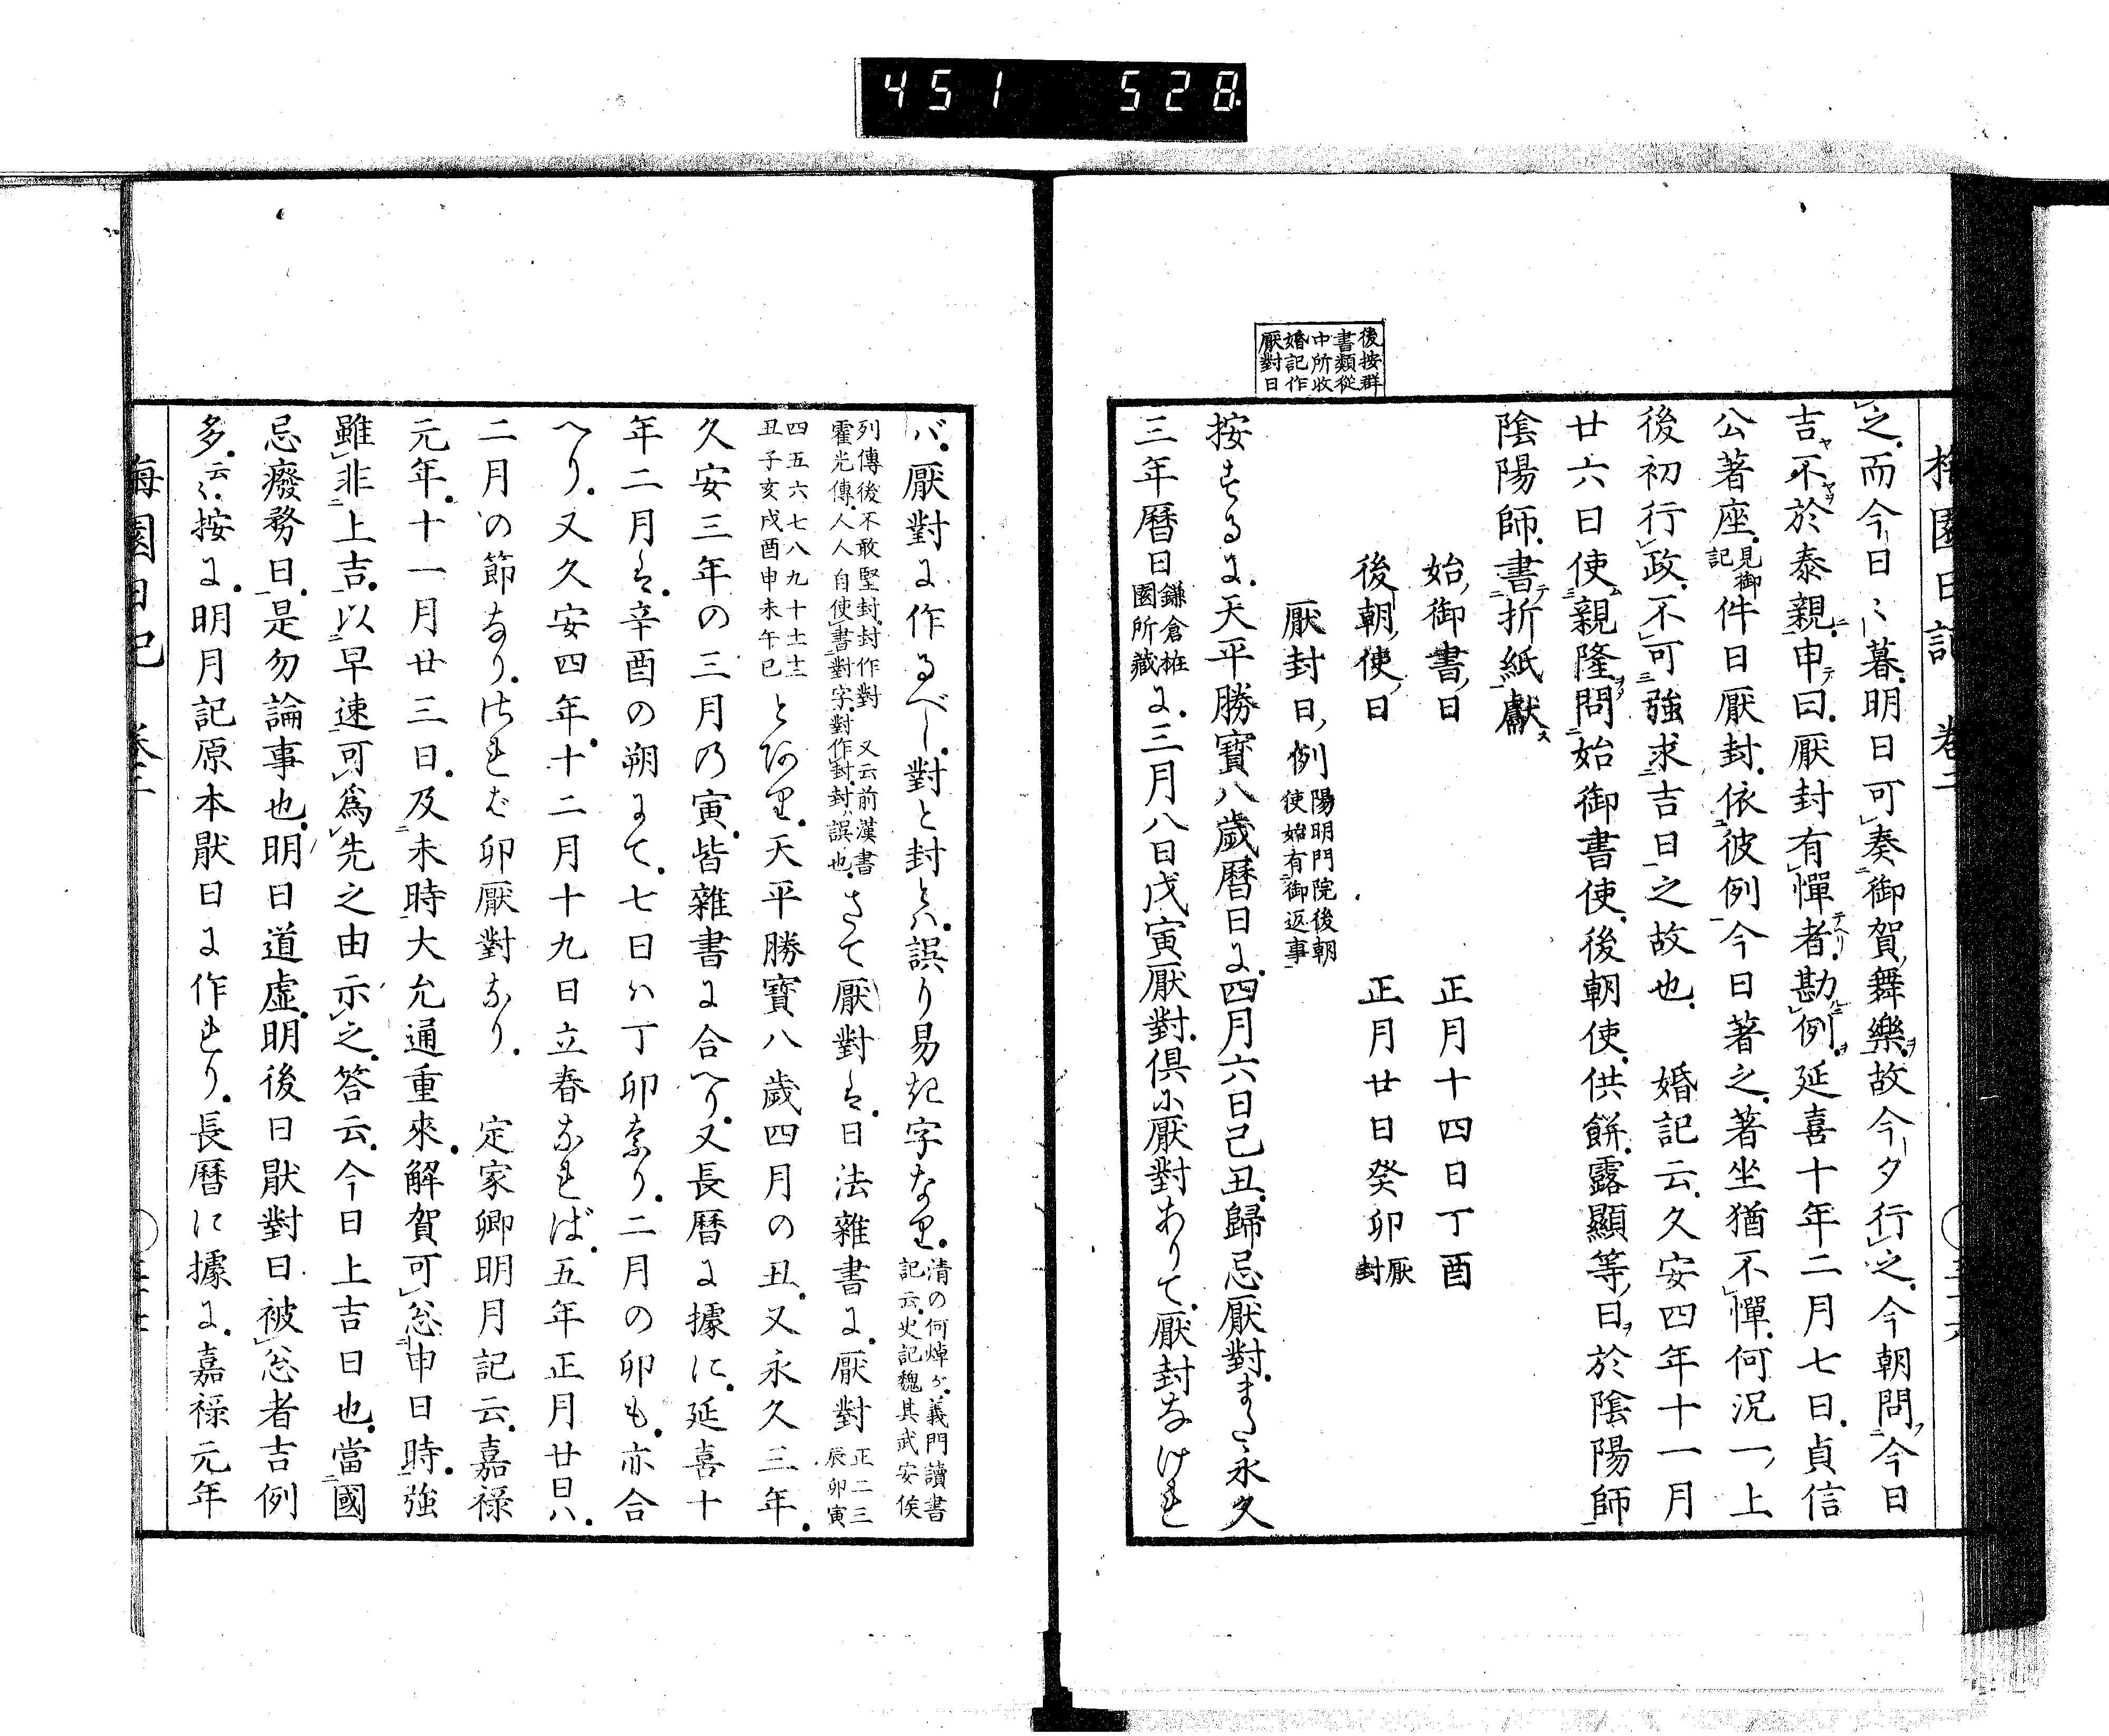 451 528
後按群
書類從
中所收
婚記作
厭對日
梅園日記 卷二
之。而今日〻暮。明日可奏御賀舞樂。故今夕行之。今朝問今日
吉不於泰親。申曰。厭封有憚者。勘例。延喜十年二月七日。貞信
公著座。見御記件日厭封。依彼例今日著之。著坐猶不憚。何況一上
後初行政。不可強求吉日之故也。 婚記云。久安四年十一月
廿六日使親隆問始御書使。後朝使。供餅。露顯等日於陰陽師
陰陽師。書折紙獻
始御書日 正月十四日丁酉
後朝使日 正月廿日癸卯厭封
厭封日例 陽明門院後朝使始有御返事
按ずるに。天平勝寶八歲曆日に。四月六日己丑。歸忌厭對。また永久
三年曆日鎌倉荘園所藏に。三月八日戊寅厭對。倶に厭對ありて。厭封なけれ
バ。厭對に作るべし。對と封とハ。誤り易き字なり。清の何焯ガ。義門讀書記云。史記魏其武安侯
列傳後不敢堅封。封作對 又云前漢書霍光傳。人人自使書對字。對作封。封ハ誤也。さて厭對は。日法雜書に。厭對 正二三辰卯寅
四五六七八九十十一十二丑子亥戌酉申未午巳とあり。天平勝寶八歲四月の丑。又永久三年。
久安三年の三月の寅。皆雜書に合へり。又長曆に據に。延喜十
年二月は。辛酉の朔にて。七日ハ丁卯なり。二月の卯も。亦合
へり。又久安四年。十二月十九日立春なれば。五年正月廿日ハ。
二月の節なり。されば卯厭對なり。 定家卿明月記云。嘉禄
元年。十一月廿三日。及未時大允通重來。解賀可忩申日時。強
雖非上吉。以早速可爲先之由示之。答云。今日上吉日也。當國
忌癈務日。是勿論事也。明日道虛。明後日厭對日。被忩者吉例
多。云〻。按に。明月記原本厭日に作れり。長曆に據に。嘉禄元年
梅園日記 卷二